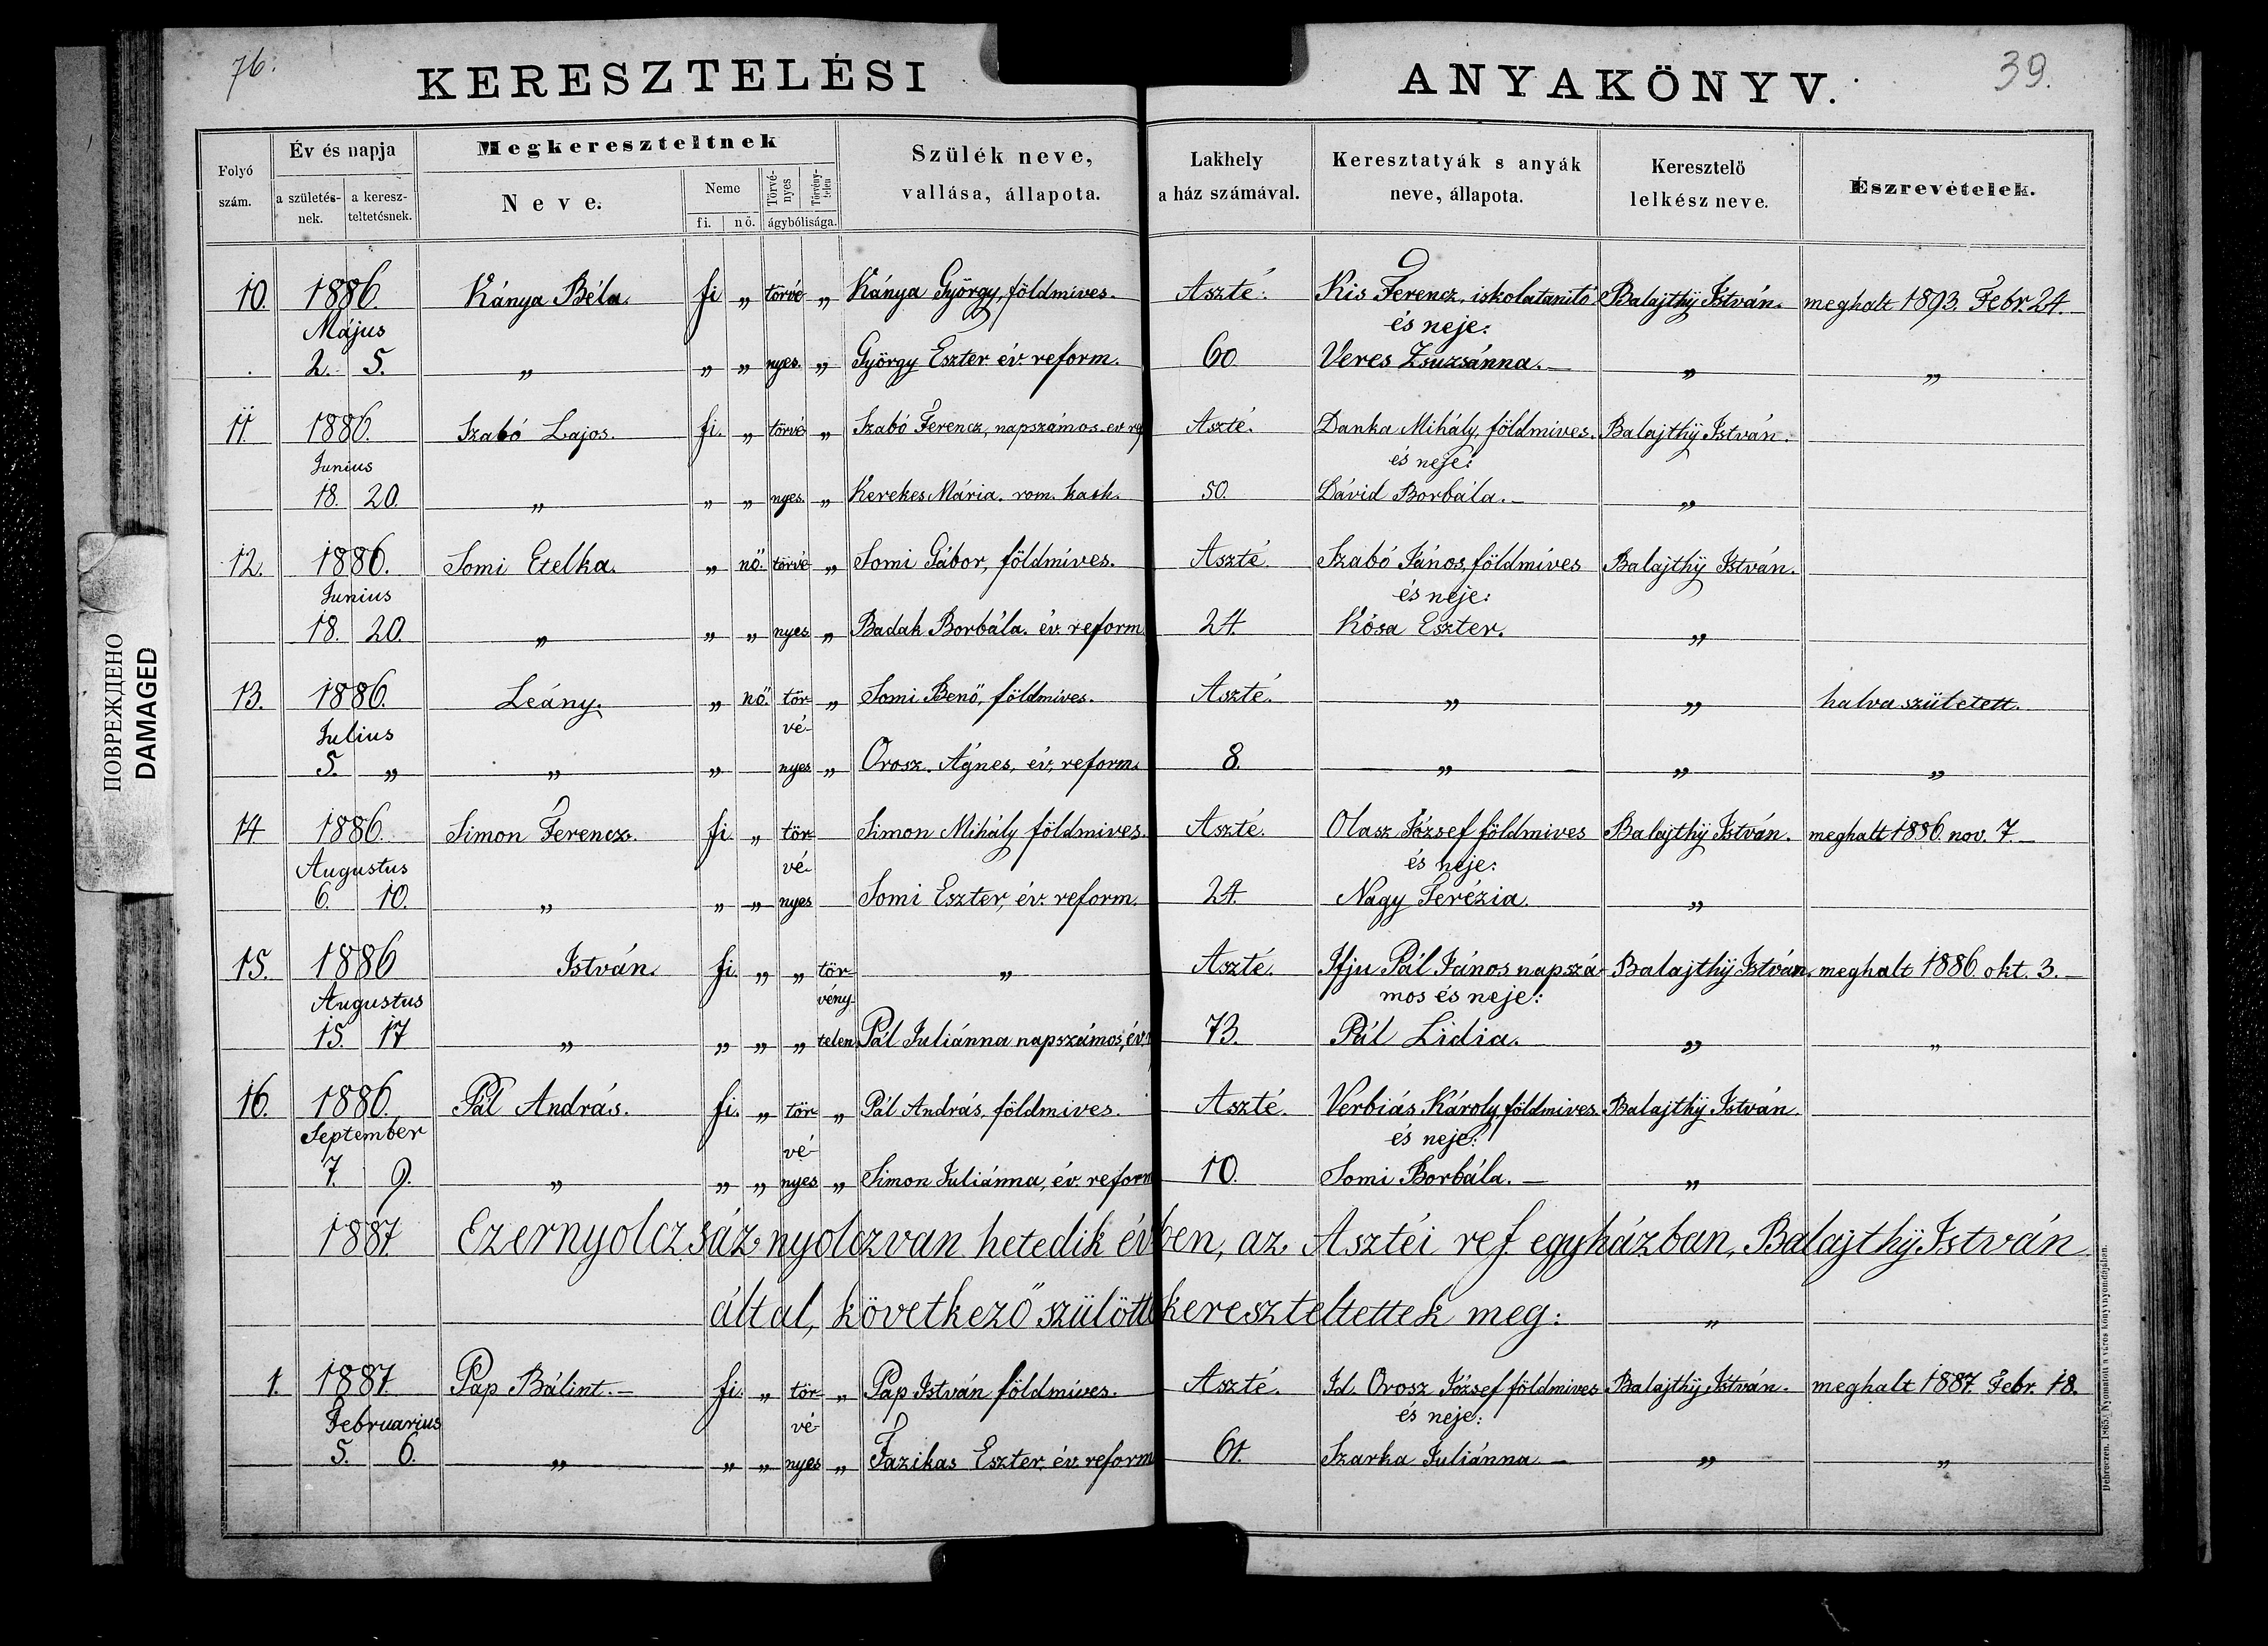 76.
KERESZTELÉSI ANYAKÖNYV.
39.
Folyó szám.
Év és napja
a születés-nek.
a keresz-teltetésnek.
Megkereszteltnek
Neve.
Neme
fi. nő.
Törvé-nyes
Törvény-telen
ágybólisága.
Szülék neve, vallása, állapota.
Lakhely a ház számával.
Keresztatyák s anyák neve, állapota.
Keresztelő lelkész neve.
Észrevételek.
10. 1886. Kánya Béla. fi „ törvé „ Kánya György, földmíves. Aszté. Kis Ferencz, iskolatanító Balajthÿ István. meghalt 1893. Febr. 24.
Május és neje:
2. 5. „ „ „ nyes. „ György Eszter év. reform. 60. Veres Zsuzsánna. — „ „
11. 1886. Szabó Lajos. fi. „ törvé „ Szabó Ferencz, napszámos. ev ref Aszté. Danka Mihály, földmíves. Balajthÿ István.
Junius és neje:
18. 20. „ „ „ nyes. „ Kerekes Mária. rom. kath. 50. Dávid Borbála. — „
12. 1886. Somi Etelka. „ nő. törvé „ Somi Gábor, földmíves. Aszté Szabó János, földmíves Balajthÿ István.
Junius és neje:
18. 20. „ „ „ nyes „ Badak Borbála. év. reform 24. Kósa Eszter. „
13. 1886. Leány. „ nő. tör- „ Somi Benő, földmíves. Aszté. „ „ halva született.
Julius vé-
5. „ „ „ nyes „ Orosz Ágnes, év. reform. 8. „ „ „
14. 1886. Simon Ferencz. fi. „ tör- Simon Mihály földmives. Aszté. Olasz József földmives Balajthÿ István. meghalt 1886. nov. 7. —
Augustus vé- és neje:
6. 10. „ „ „ nyes Somi Eszter, év. reform. 24. Nagy Terézia. „
15. 1886 István. fi. „ „ tör- „ Aszté. Ifju Pál János napszá- Balajthÿ István. meghalt 1886. okt. 3. —
Augustus vény- mos és neje:
15. 17 „ „ „ „ telen Pál Juliánna napszámos, év. 73. Pál Lidia. „ „
16. 1886. Pál András. fi. „ tör- „ Pál András, földmives. Aszté. Verbiás Károly, földmives. Balajthÿ István.
September vé- és neje:
7. 9. „ „ „ nyes „ Simon Juliánna, év. reform 10. Somi Borbála. — „
1887 Ezernyolczsáz nyolczvan hetedik évben, az Asztéi ref. egyházban, Balajthÿ István
által, következő szülötte kereszteltettek meg: „
1. 1887. Pap Bálint. — fi. „ tör- „ Pap István földmíves. Aszté. Id. Orosz József földmives Balajthÿ István. meghalt 1887. Febr. 18.
Februarius vé- és neje:
5. 6. „ „ „ nyes „ Fazikas Eszter, év. reform 61. Szarka Juliánna — „ „
ПОВРЕЖДЕНО
DAMAGED
Debreczen. 1865. Nyomatott a város könyvnyomdájában.